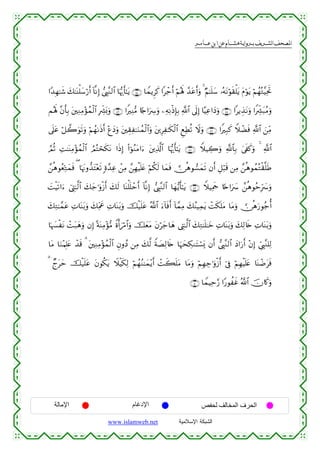 المصحف الشريف برواية هشام عن ابن عامر
تَحِيَّتُهُمْ يَوْمَ يَلْقَوْنَهُۥ سَلَٰمٌ ۚ وَأَعَدَّ لَهُمْ أَجْرًا كَرِيمًا ۝ يَٰٓأَيُّهَا ٱلنَّبِىُّ إِنَّآ أَرْسَلْنَٰكَ شَٰهِدًا
وَمُبَشِّرًا وَنَذِيرًا ۝ وَدَاعِيًا إِلَى ٱللَّهِ بِإِذْنِهِۦ وَسِرَاجًا مُّنِيرًا ۝ وَبَشِّرِ ٱلْمُؤْمِنِينَ بِأَنَّ لَهُم
مِّنَ ٱللَّهِ فَضْلًا كَبِيرًا ۝ وَلَا تُطِعِ ٱلْكَٰفِرِينَ وَٱلْمُنَٰفِقِينَ وَدَعْ أَذَىٰهُمْ وَتَوَكَّلْ عَلَى
ٱللَّهِ ۚ وَكَفَىٰ بِٱللَّهِ وَكِيلًا ۝ يَٰٓأَيُّهَا ٱلَّذِينَ ءَامَنُوٓا۟ إِذَا نَكَحْتُمُ ٱلْمُؤْمِنَٰتِ ثُمَّ
طَلَّقْتُمُوهُنَّ مِن قَبْلِ أَن تَمَسُّوهُنَّ فَمَا لَكُمْ عَلَيْهِنَّ مِنْ عِدَّةٍ تَعْتَدُّونَهَا ۖ فَمَتِّعُوهُنَّ
وَسَرِّحُوهُنَّ سَرَاحًا جَمِيلًا ۝ يَٰٓأَيُّهَا ٱلنَّبِىُّ إِنَّآ أَحْلَلْنَا لَكَ أَزْوَٰجَكَ ٱلَّٰتِىٓ ءَاتَيْتَ
أُجُورَهُنَّ وَمَا مَلَكَتْ يَمِينُكَ مِمَّآ أَفَآءَ ٱللَّهُ عَلَيْكَ وَبَنَاتِ عَمِّكَ وَبَنَاتِ عَمَّٰتِكَ
وَبَنَاتِ خَالِكَ وَبَنَاتِ خَٰلَٰتِكَ ٱلَّٰتِى هَاجَرْنَ مَعَكَ وَٱمْرَأَةً مُّؤْمِنَةً إِن وَهَبَتْ نَفْسَهَا
لِلنَّبِىِّ إِنْ أَرَادَ ٱلنَّبِىُّ أَن يَسْتَنكِحَهَا خَالِصَةً لَّكَ مِن دُونِ ٱلْمُؤْمِنِينَ ۗ قَدْ عَلِمْنَا مَا
فَرَضْنَا عَلَيْهِمْ فِىٓ أَزْوَٰجِهِمْ وَمَا مَلَكَتْ أَيْمَٰنُهُمْ لِكَيْلَا يَكُونَ عَلَيْكَ حَرَجٌ ۗ
وَكَانَ ٱللَّهُ غَفُورًا رَّحِيمًا ۝
الحرف المخالف لحفص الإدغام الإمالة
www.islamweb.net الشبكة الإسلامية